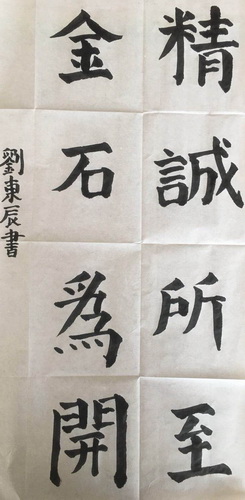 精誠所至
金石為開
劉東辰書